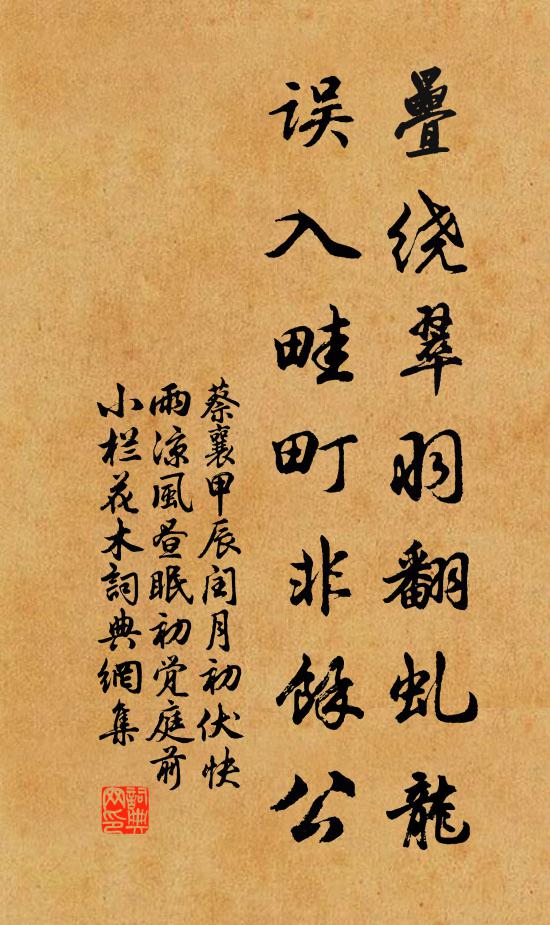 疊绕翠羽翻虬龍
误入畦町非餘公
蔡襄甲辰闰月初伏快
雨凉風昼眠初觉庭前
小栏花木詞典網集
詞典
网印